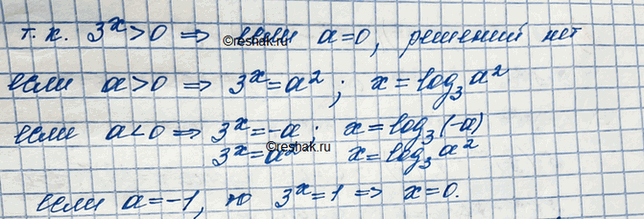 т. к. 3^x>0 ⇒ если a=0, решений нет
reshak.ru
если a>0 ⇒ 3^x=a^2; x=log_3 a^2
если a<0 ⇒ 3^x=-a; x=log_3(-a)
reshak.ru
3^x=a^2 x=log_3 a^2
если a=-1, то 3^x=1 ⇒ x=0.